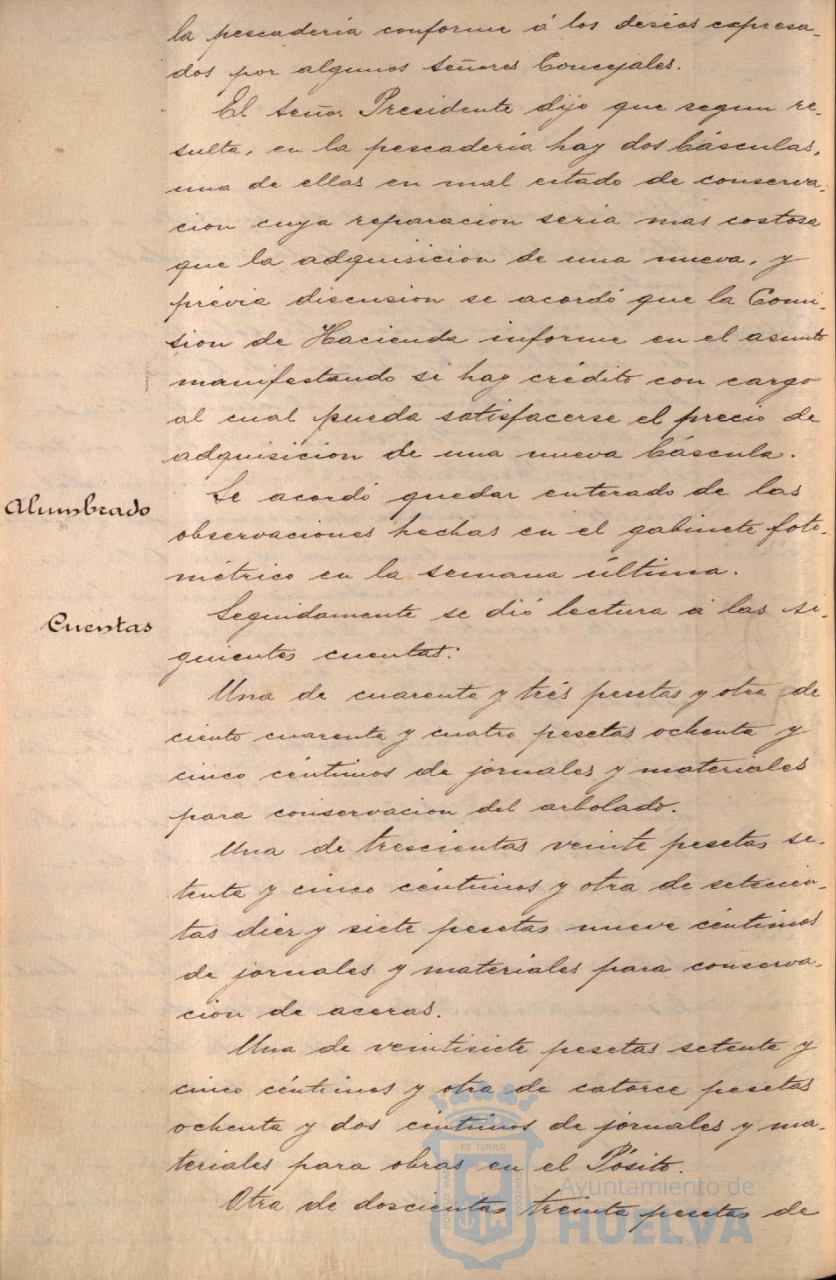 la pescadería conforme á los deseos expresa-
dos por algunos señores Concejales.
El señor Presidente dijo que segun re-
sulta, en la pescadería hay dos básculas,
una de ellas en mal estado de conserva-
cion cuya reparacion seria mas costosa
que la adquisicion de una nueva, y
prévia discusion se acordó que la Comi-
sion de Hacienda informe en el asunto
manifestando si hay crédito con cargo
al cual pueda satisfacerse el precio de
adquisicion de una nueva báscula.
Alumbrado
Se acordó quedar enterado de las
observaciones hechas en el gabinete foto-
métrico en la semana última.
Cuentas
Seguidamente se dió lectura á las si-
guientes cuentas:
Una de cuarenta y trés pesetas y otra de
ciento cuarenta y cuatro pesetas ochenta y
cinco céntimos de jornales y materiales
para conservacion del arbolado.
Una de trescientas veinte pesetas se-
tenta y cinco céntimos y otra de setecien-
tas diez y siete pesetas nueve céntimos
de jornales y materiales para conserva-
cion de aceras.
Una de veintisiete pesetas setenta y
cinco céntimos y otra de catorce pesetas
ochenta y dos céntimos de jornales y ma-
teriales para obras en el Pósito.
Otra de doscientas treinta pesetas de
ET TERRÆ
Ayuntamiento de
HUELVA